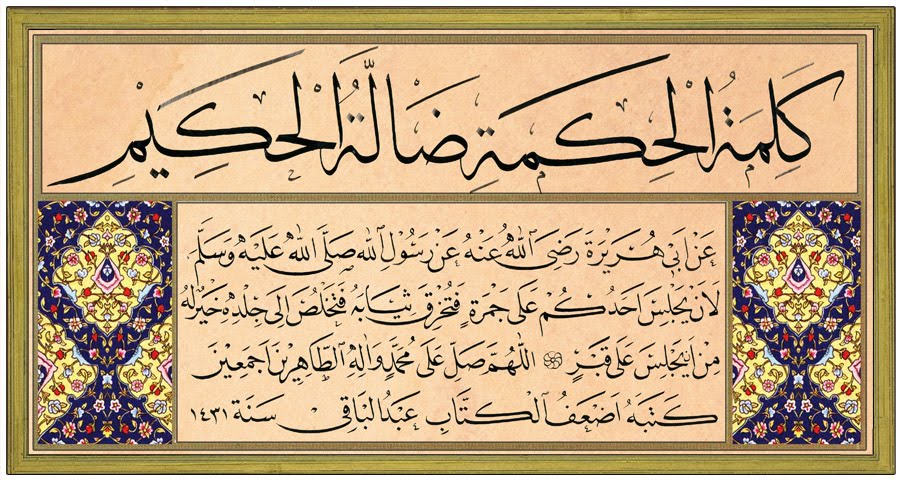 كَلِمَةُ الْحِكْمَةِ ضَالَّةُ الْحَكِيْمِ
عَنْ اَبِى هُرَيْرَةَ رَضِىَ اللهُ عَنْهُ عَنْ رَسُوْلِ اللهِ صَلَّى اللهُ عَلَيْهِ وَسَلَّمَ
لَاَنْ يَجْلِسَ اَحَدُكُمْ عَلَى جَمْرَةٍ فَتُحْرِقَ ثِيَابَهُ فَتَخْلُصَ اِلَى جِلْدِهِ خَيْرٌ لَهُ
مِنْ اَنْ يَجْلِسَ عَلَى قَبْرٍ اَللّٰهُمَّ صَلِّ عَلَى مُحَمَّدٍ وَاٰلِهِ الطَّاهِرِيْنَ اَجْمَعِيْنَ
كَتَبَهُ اَضْعَفُ الْكُتَّابِ عَبْدُ الْبَاقِى سَنَة ١٤٣١